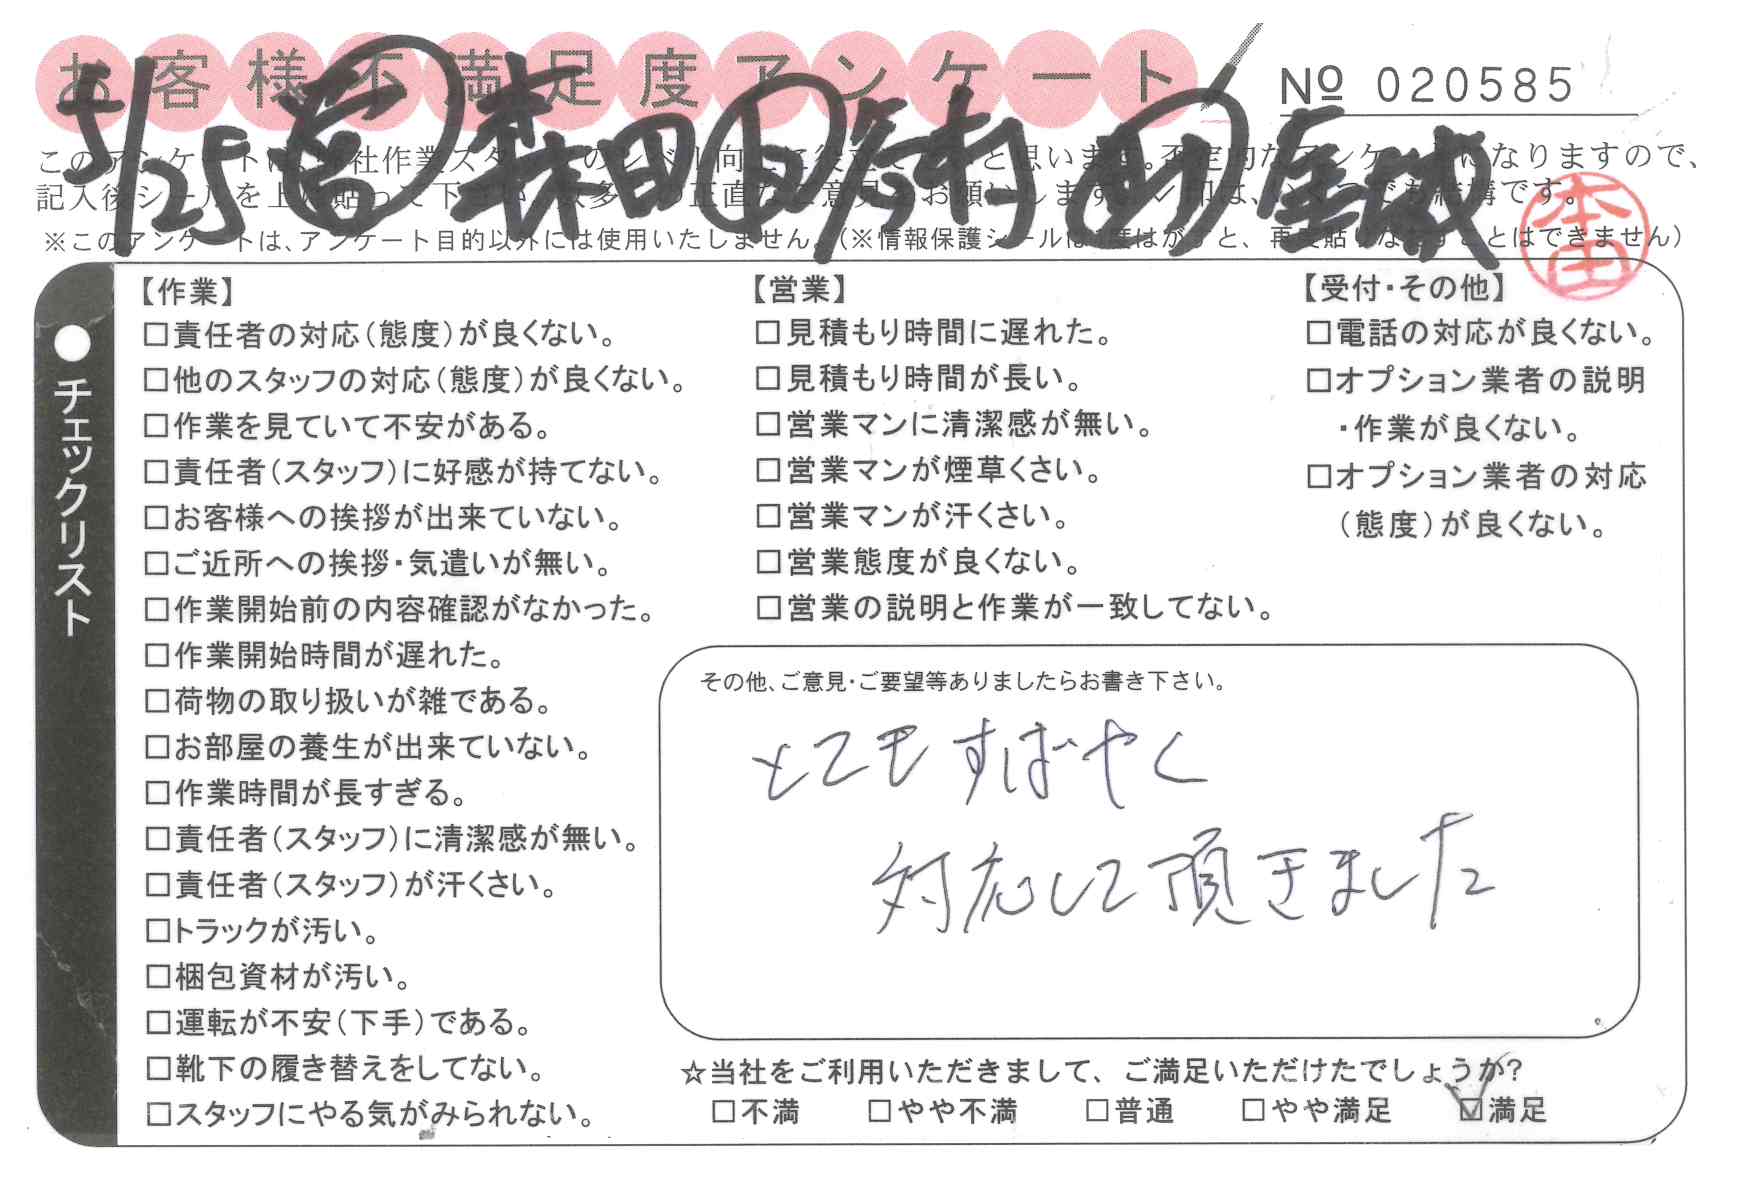 お客様不満足度アンケート
№ 020585
5/25 営 森田
※このアンケートは、アンケート目的以外には使用いたしません。(※情報保護シールは1度はがすと、再度貼りなおすことはできません)
本田
●チェックリスト
【作業】
□責任者の対応(態度)が良くない。
□他のスタッフの対応(態度)が良くない。
□作業を見ていて不安がある。
□責任者(スタッフ)に好感が持てない。
□お客様への挨拶が出来ていない。
□ご近所への挨拶・気遣いが無い。
□作業開始前の内容確認がなかった。
□作業開始時間が遅れた。
□荷物の取り扱いが雑である。
□お部屋の養生が出来ていない。
□作業時間が長すぎる。
□責任者(スタッフ)に清潔感が無い。
□責任者(スタッフ)が汗くさい。
□トラックが汚い。
□梱包資材が汚い。
□運転が不安(下手)である。
□靴下の履き替えをしてない。
□スタッフにやる気がみられない。
【営業】
□見積もり時間に遅れた。
□見積もり時間が長い。
□営業マンに清潔感が無い。
□営業マンが煙草くさい。
□営業マンが汗くさい。
□営業態度が良くない。
□営業の説明と作業が一致してない。
【受付・その他】
□電話の対応が良くない。
□オプション業者の説明
・作業が良くない。
□オプション業者の対応
(態度)が良くない。
その他、ご意見・ご要望等ありましたらお書き下さい。
とてもすばやく
対応して頂きました
☆当社をご利用いただきまして、ご満足いただけたでしょうか?
□不満 □やや不満 □普通 □やや満足 ☑満足